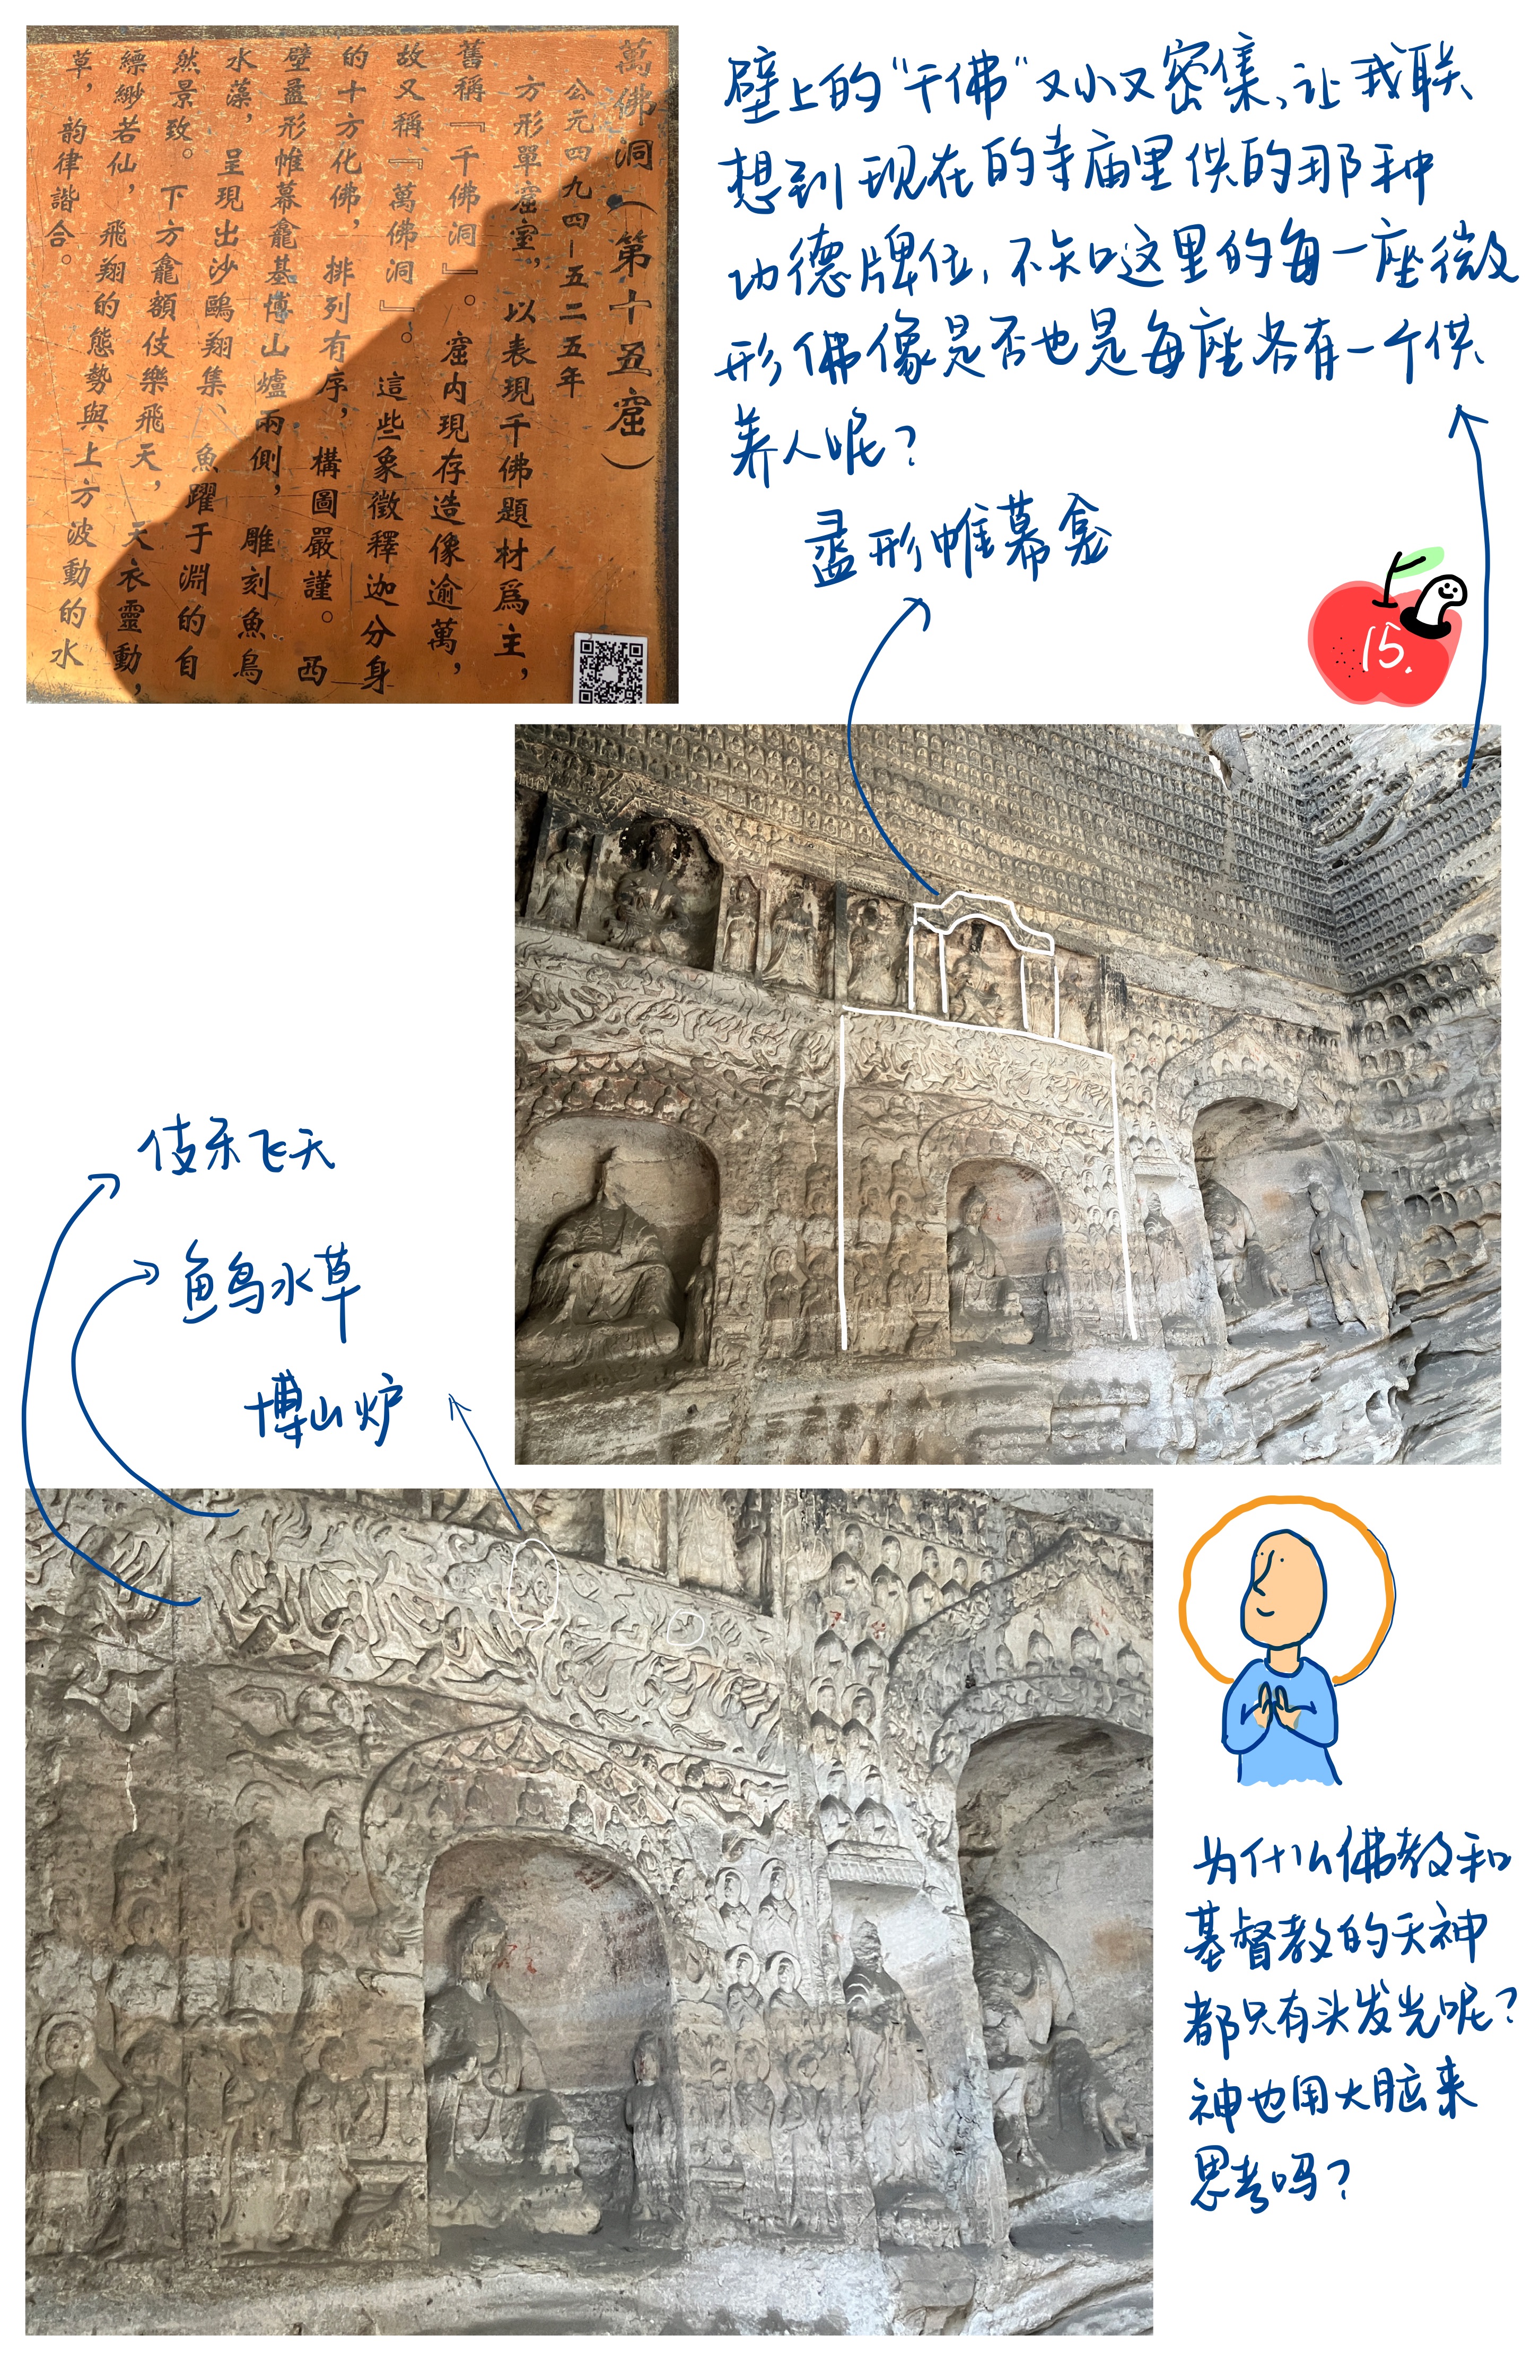 萬佛洞（第十五窟）
公元四九四—五二五年
方形單窟室，以表現千佛題材爲主，
舊稱『千佛洞』。窟内現存造像逾萬，
故又稱『萬佛洞』。這些象徵釋迦分身
的十方化佛，排列有序，構圖嚴謹。西
壁盝形帷幕龕基博山爐兩側，雕刻魚鳥
水藻，呈現出沙鷗翔集、魚躍于淵的自
然景致。下方龕額伎樂飛天，天衣靈動，
縹緲若仙，飛翔的態勢與上方波動的水
草，韵律諧合。
壁上的“千佛”又小又密集，让我联
想到现在的寺庙里供的那种
功德牌位，不知这里的每一座微
形佛像是否也是每座各有一个供
养人呢？
盝形帷幕龛
15.
伎乐飞天
鱼鸟水草
博山炉
为什么佛教和
基督教的天神
都只有头发光呢？
神也用大脑来
思考吗？